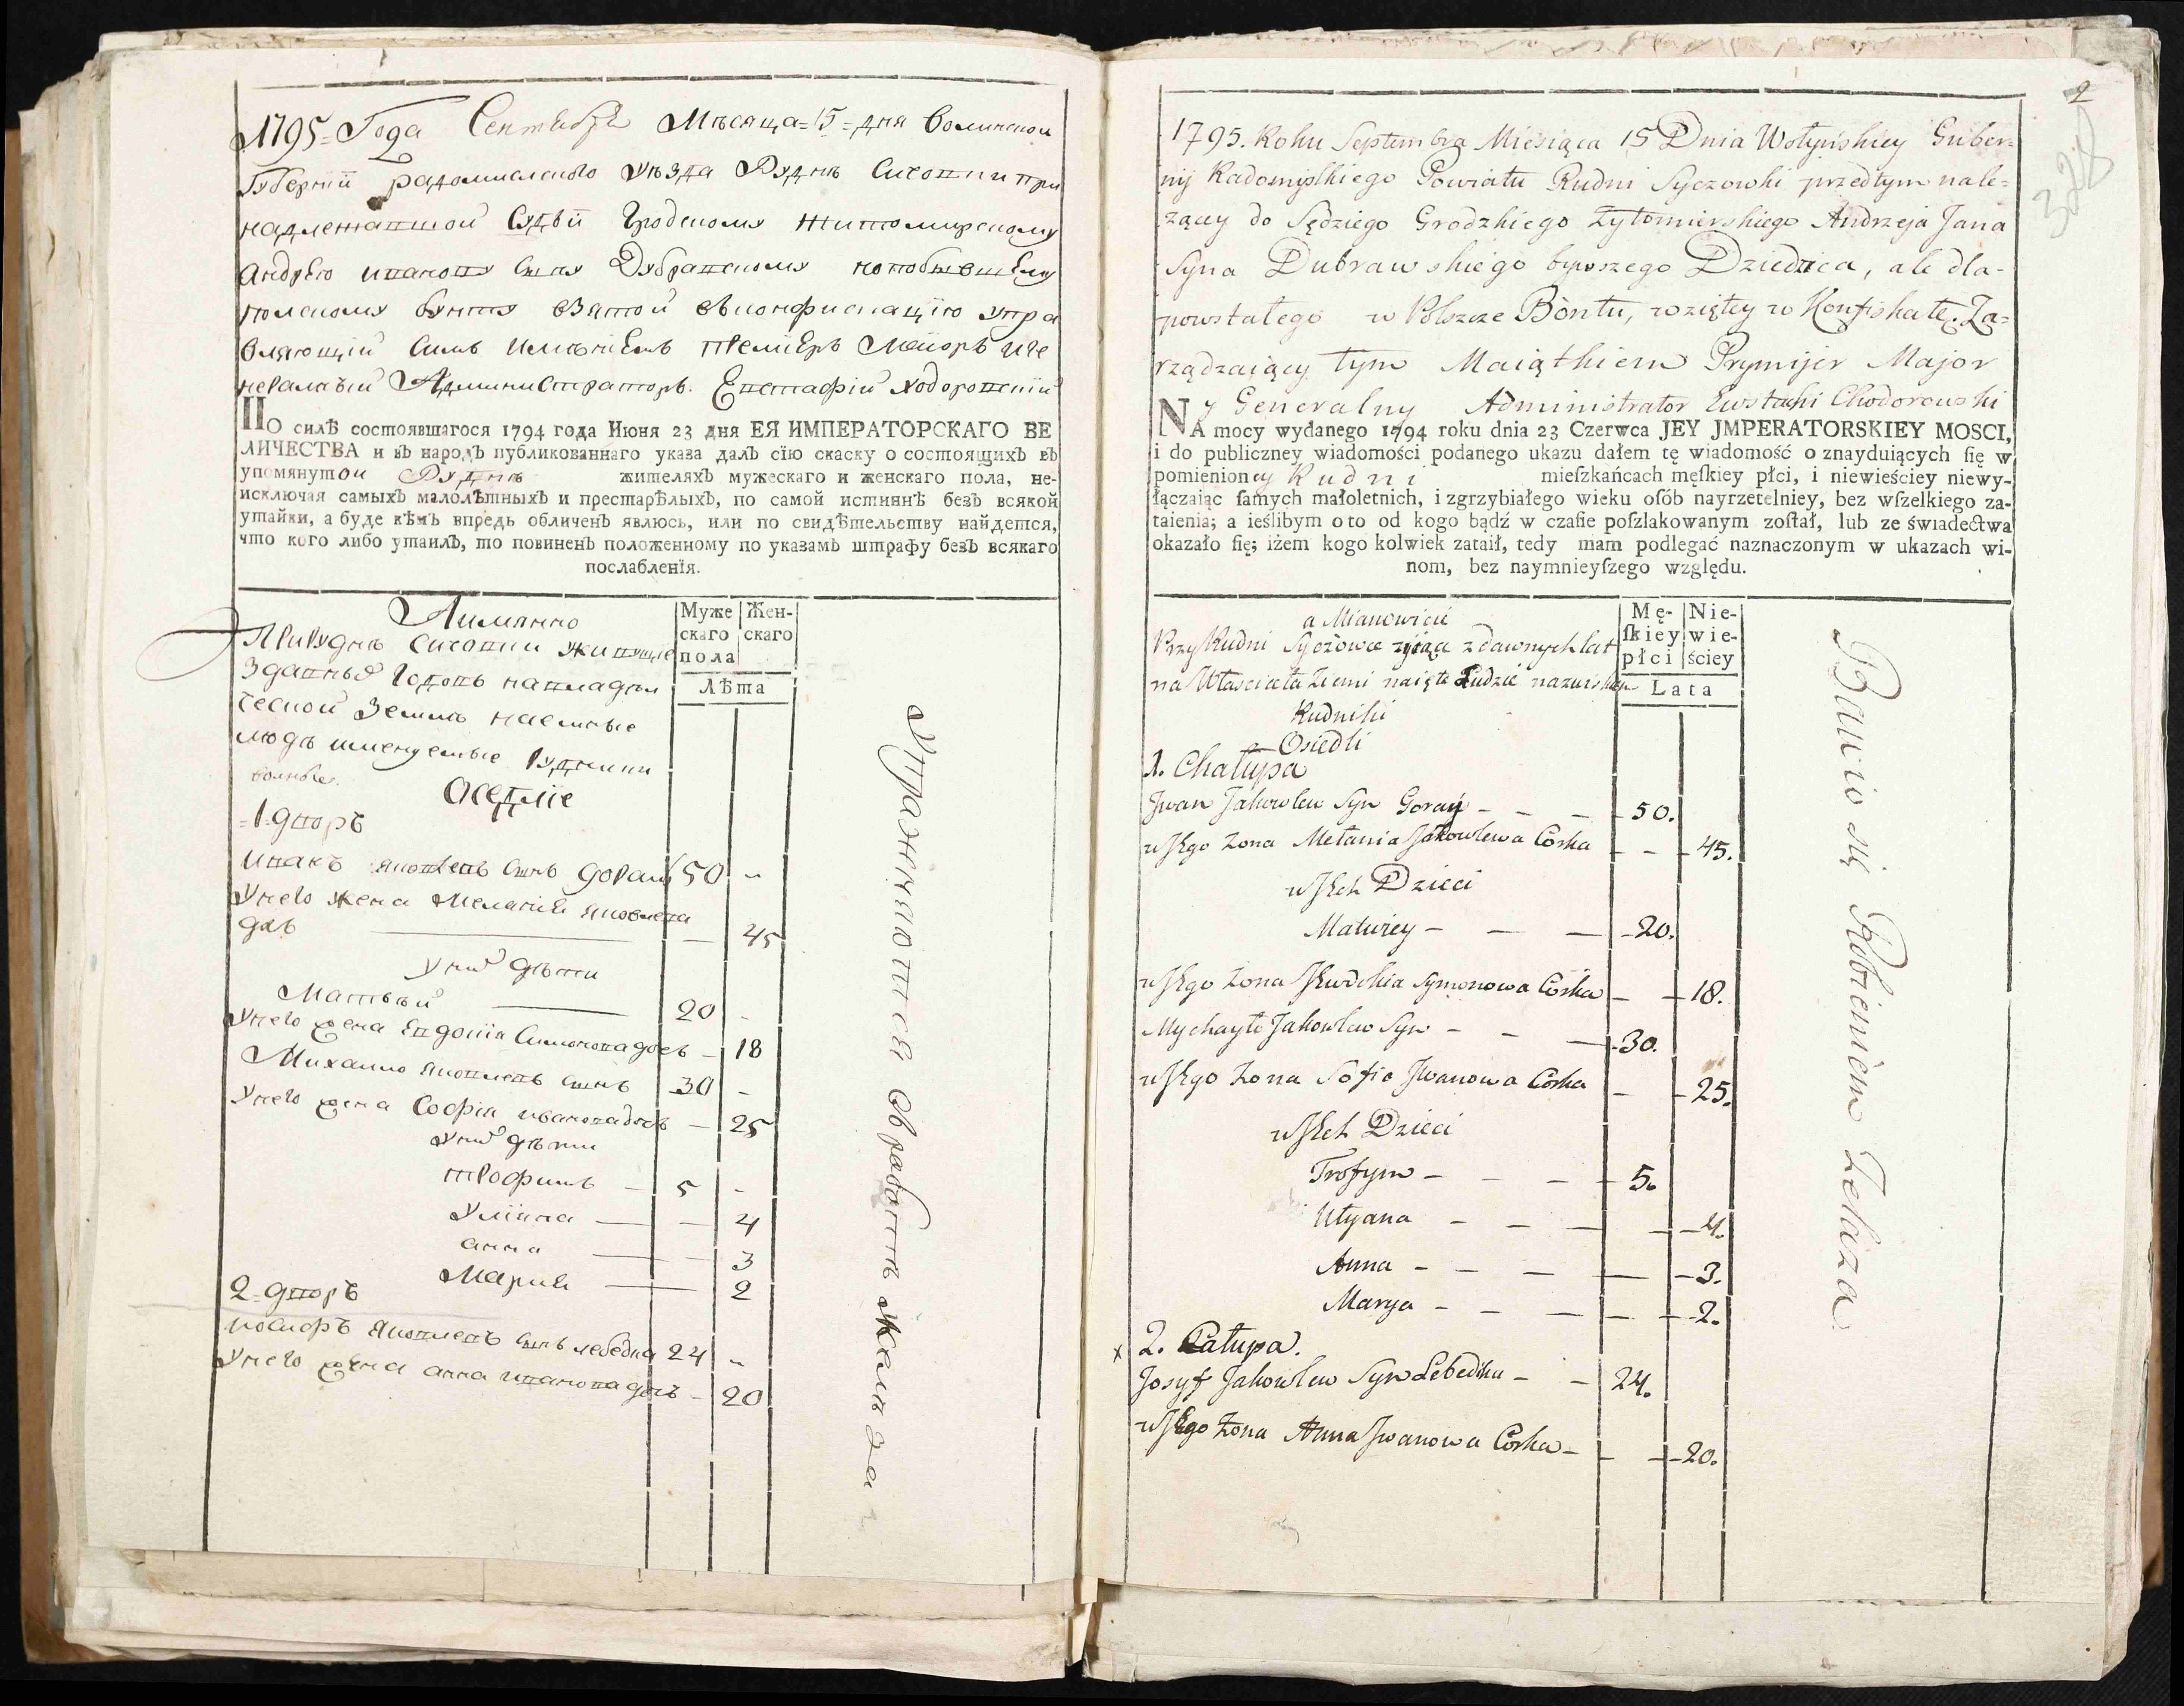 1795 = Года Сентября Мѣсяца = 15 = дня Волинской
Губернїи радомислскаго уѣзда Руднѣ Сичовки при
надлежавшой Судьи Гродскому житомирскому
андрею иванову сыну Дубравскому но побывшему
полскому бунту взятой въ конфискацїю упра
вляющїй симъ имѣниемъ премиеръ Маиоръ и ге
нералный Администраторъ. Евстафїй ходоровскїй
ПО силѣ состоявшагося 1794 года Июня 23 дня ЕЯ ИМПЕРАТОРСКАГО ВЕ
ЛИЧЕСТВА и въ народъ публикованнаго указа далъ сїю скаску о состоящихъ въ
упомянутой Руднѣ жителяхъ мужескаго и женскаго пола, не-
исключая самыхъ малолѣтныхъ и престарѣлыхъ, по самой истиннѣ безъ всякой
утайки, а буде кѣмъ впредь обличенъ явлюсь, или по свидѣтельству найдется,
что кого либо утаилъ, то повиненъ положенному по указамъ штрафу безъ всякаго
послабленїя.
Аимянно
При Руднѣ Сичовки живущие
здавныхъ годовъ на владѣл
ческой землѣ наемные
людѣ именуемые рудники
волные.
Оседлїе
Муже
скаго
пола
Жен-
скаго
Лѣта
= 1 = дворъ
иванъ яковлевъ сынъ горай 50 -
У него жена Мелания яковлева
дчь — 45
У них дѣти
Матвѣй 20 -
У него жена Евдокїя Симонова дочь - 18
Михайло яковлевъ сынъ 30 -
У него жена Софїя иванова дочь - 25
У них дѣти
трофимъ - 5 -
Улїяна — 4
анна — 3
Мария — 2
2 = дворъ
иосифъ яковлевъ сынъ лебедка 24 -
У него жена анна иванова дочь - 20
Упражняются въ работѣ желѣза
2
328
1795. Roku Septembra Miesiąca 15 Dnia Wołyńskiey Guber=
nij Radomyslkiego Powiatu Rudni Syczowki przedtym nale=
zącey do Sędziego Grodzkiego Zytomierskiego Andrzeja Jana
Syna Dubrawskiego bywszego Dziedzica, ale dla-
powstałego w Polszcze Bóntu, wziętey w Konfiskatę. Za=
rządzaiący tym Maiątkiem Prymijer Major
y Generalny Administrator Ewstachi Chodorowski
NA mocy wydanego 1794 roku dnia 23 Czerwca JEY JMPERATORSKIEY MOSCI,
i do publiczney wiadomości podanego ukazu dałem tę wiadomość o znayduiących ſię w
pomienioney Rudni mieſzkańcach męſkiey płci, i niewieściey niewy-
łączaiąc ſamych małoletnich, i zgrzybiałego wieku oſób nayrzetelniey, bez wſzelkiego za-
taienia; a ieślibym oto od kogo bądź w czaſie poſzlakowanym zoſtał, lub ze świadectwa
okazało ſię; iżem kogo kolwiek zataił, tedy mam podlegać naznaczonym w ukazach wi-
nom, bez naymnieyſzego względu.
a Mianowicie
Przy Rudni Syczowce zyiąca z dawnych lat
na Właściciela Ziemi naięte Ludzie
Rudniki
Osiedli
Mę-
ſkiey
płci
Nie-
wie-
ściey
Lata
1. Chałupa
Jwan Jakowlew Syn Goray - - - 50.
u Jego Zona Mełania Jakowlewa Córka - - 45.
u Jch Dzieci
Matwiey - — — 20.
u Jego Zona Jewdokia Symonowa Córka — 18.
Mychayło Jakowlew Syn - - — 30.
u Jego Zona Sofia Jwanowa Córka - - 25.
u Jch Dzieci
Trofym - - - 5.
Ulyana - - — 4.
Anna - - — — 3.
Marya - - — — 2.
x 2. Całupa.
Josyf Jakowlew Syn Lebedka - - 24.
u Jego Zona Anna Jwanowa Córka - — 20.
Bawio się Robieniem Zelaza